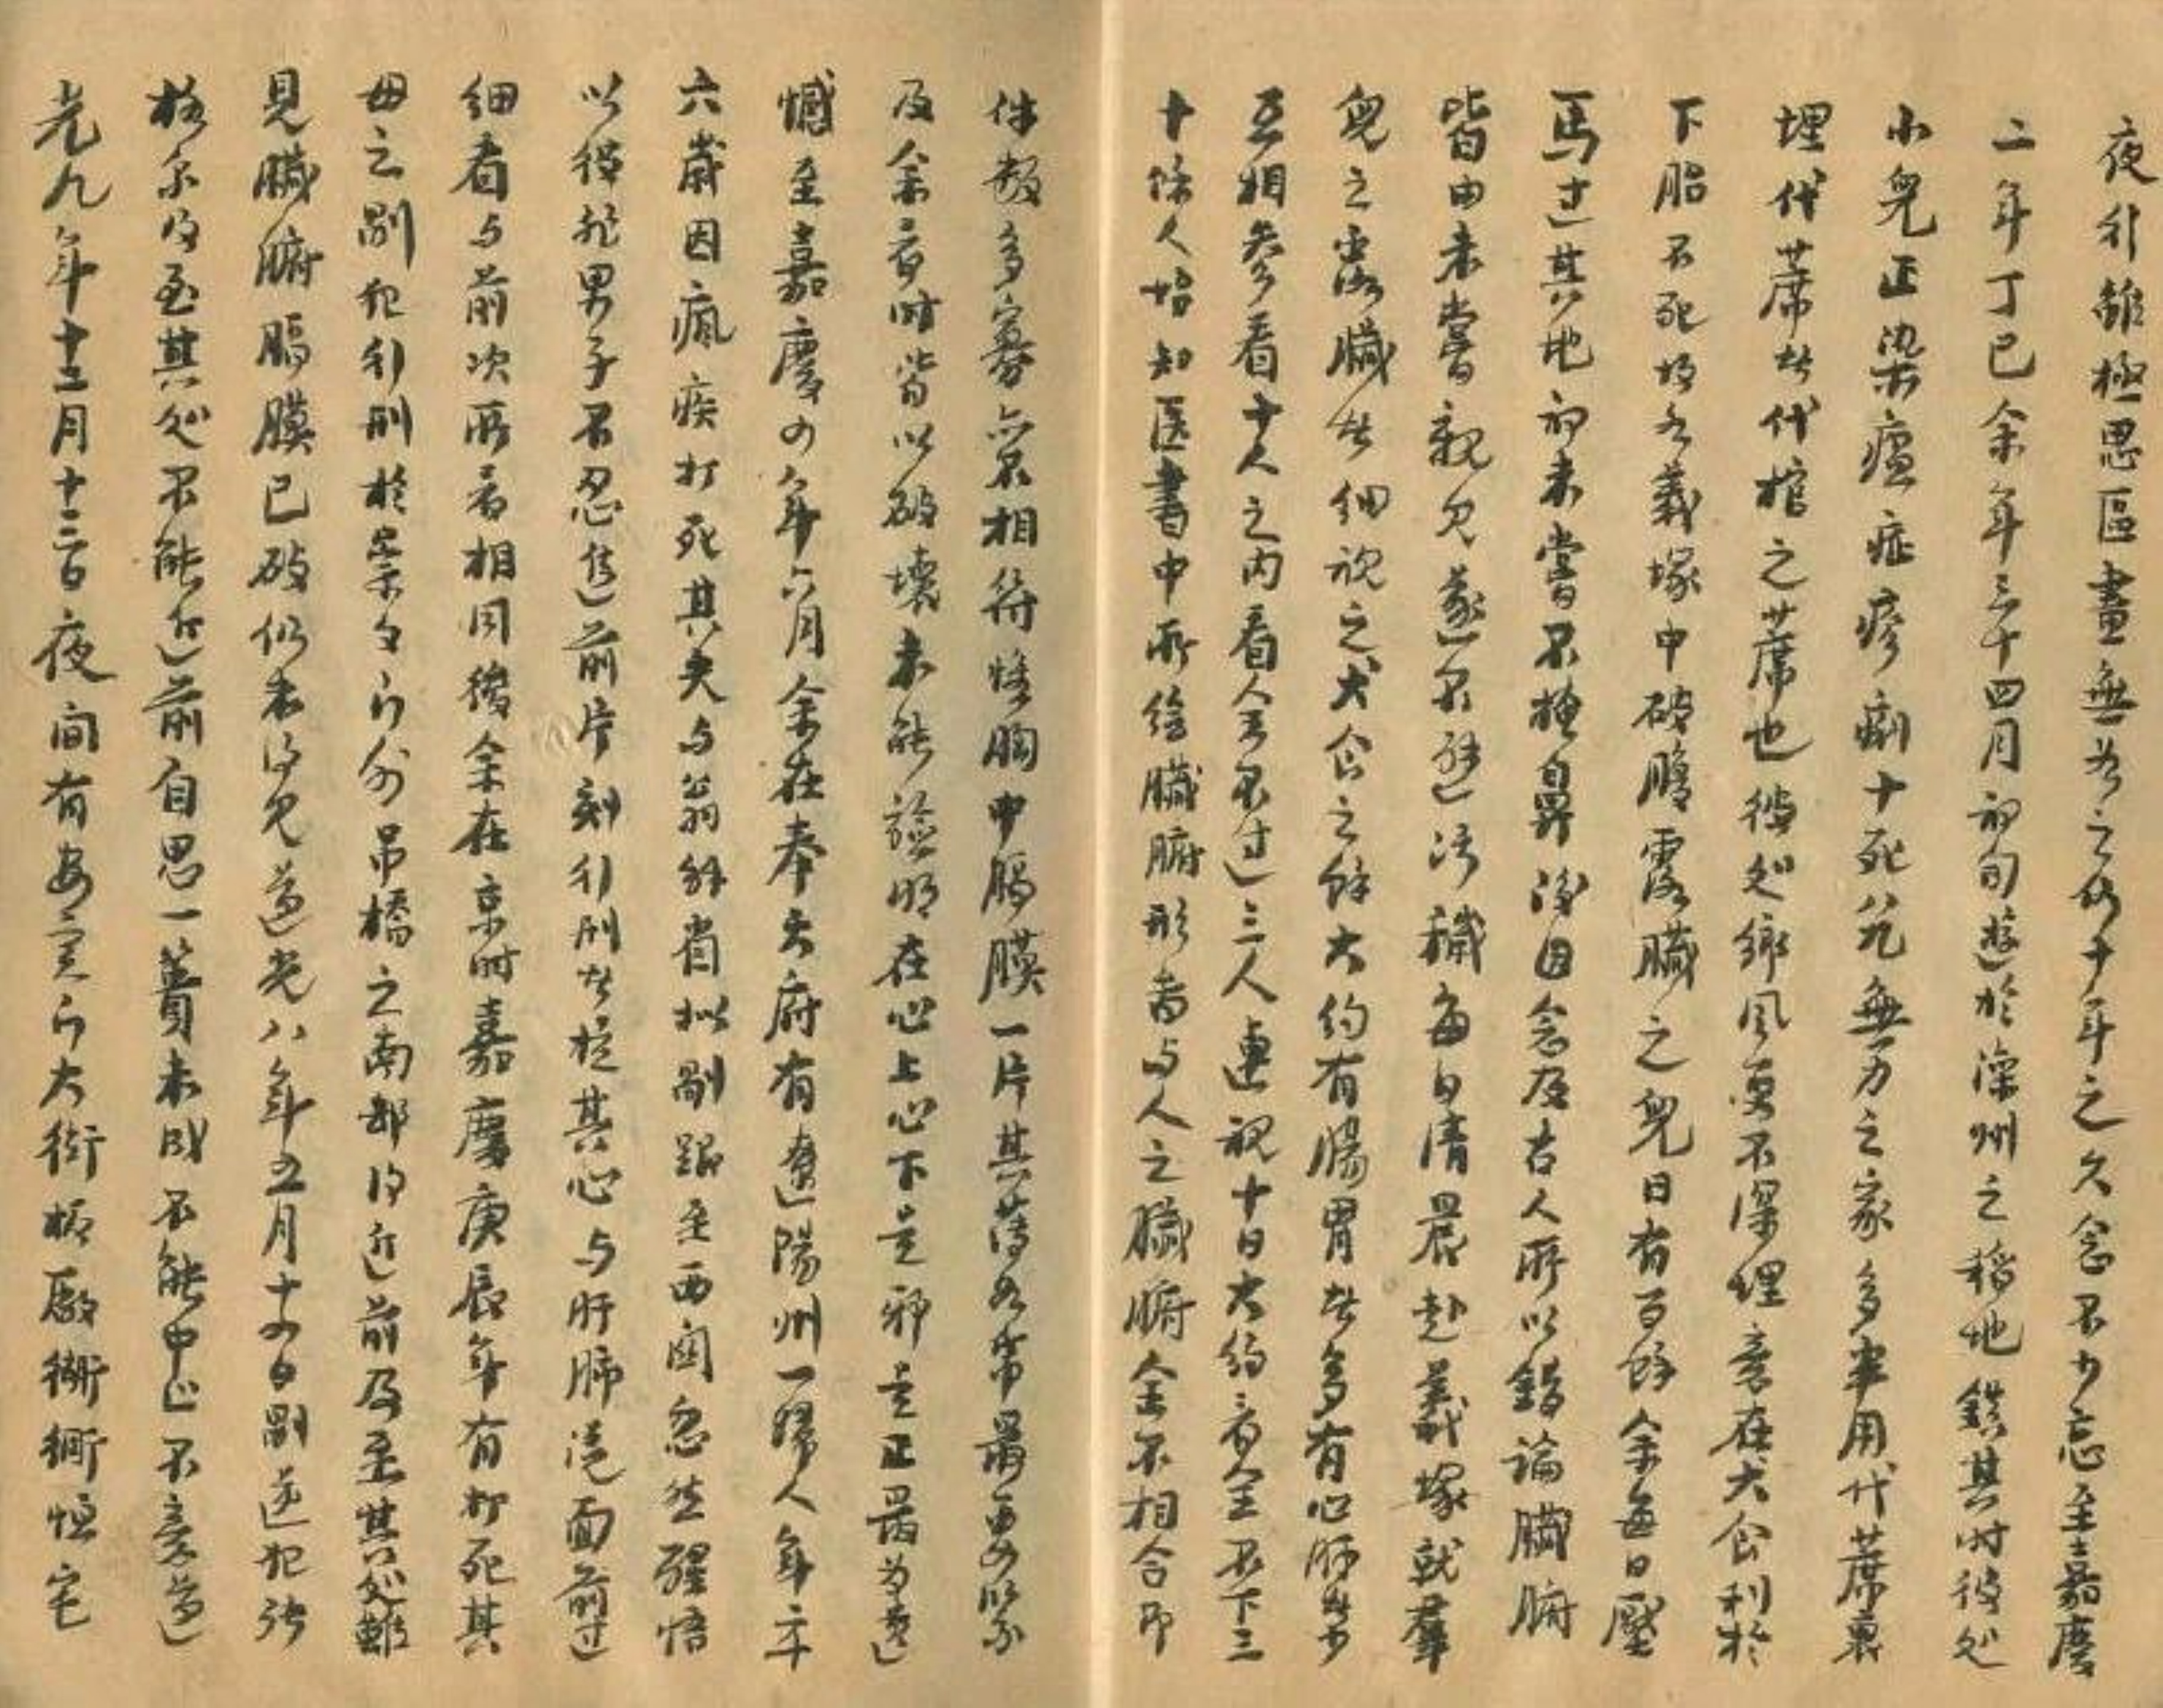 夜行雖極思區畫無為之何十年之久念不少忘至嘉慶
二年丁巳余年三十四月初旬遊於灤州之稻地鎮其時彼処
小兒正染瘟症疹痢十死八九無力之家多半用代蓆裹
埋代蓆者代棺之蓆也彼処鄉風更不深埋意在犬食利於
下胎不死故各義塚中破腹露臟之兒日有百餘余每日壓
馬过其地初未嘗不掩鼻後因念及古人所以錯論臟腑
皆由未嘗親見遂不避污穢每日清晨赴義塚就羣
兒之露臟者細視之犬食之餘大約有腸胃者多有心肝者少
互相参看十人之內看全不过三人連視十日大約看全不下三
十餘人始知医書中所绘臟腑形者与人之臟腑全不相合即
件数多寡亦不相符惟胸中膈膜一片其薄如帋最要緊
及余看时皆以破壞未能驗明在心上心下是邪是正最為遺
憾至嘉慶四年六月余在奉天府有遼陽州一婦人年二十
六歲因瘋疾打死其夫与翁解省擬剮跟至西関忽然醒悟
以彼非男子不忍進前片刻行刑者提其心与肝肺從面前过
細看与前次所看相同後余在京时嘉慶庚辰年有打死其
母之剮犯行刑於崇文门外吊橋之南郤得近前及至其処雖
見臟腑膈膜已破仍未得見道光八年五月十四日剮逆犯張
格尔及至其処不能近前自思一簣未成不能中止不意道
光九年十二月十三日夜间有安定门大街板廠衚衕恒宅